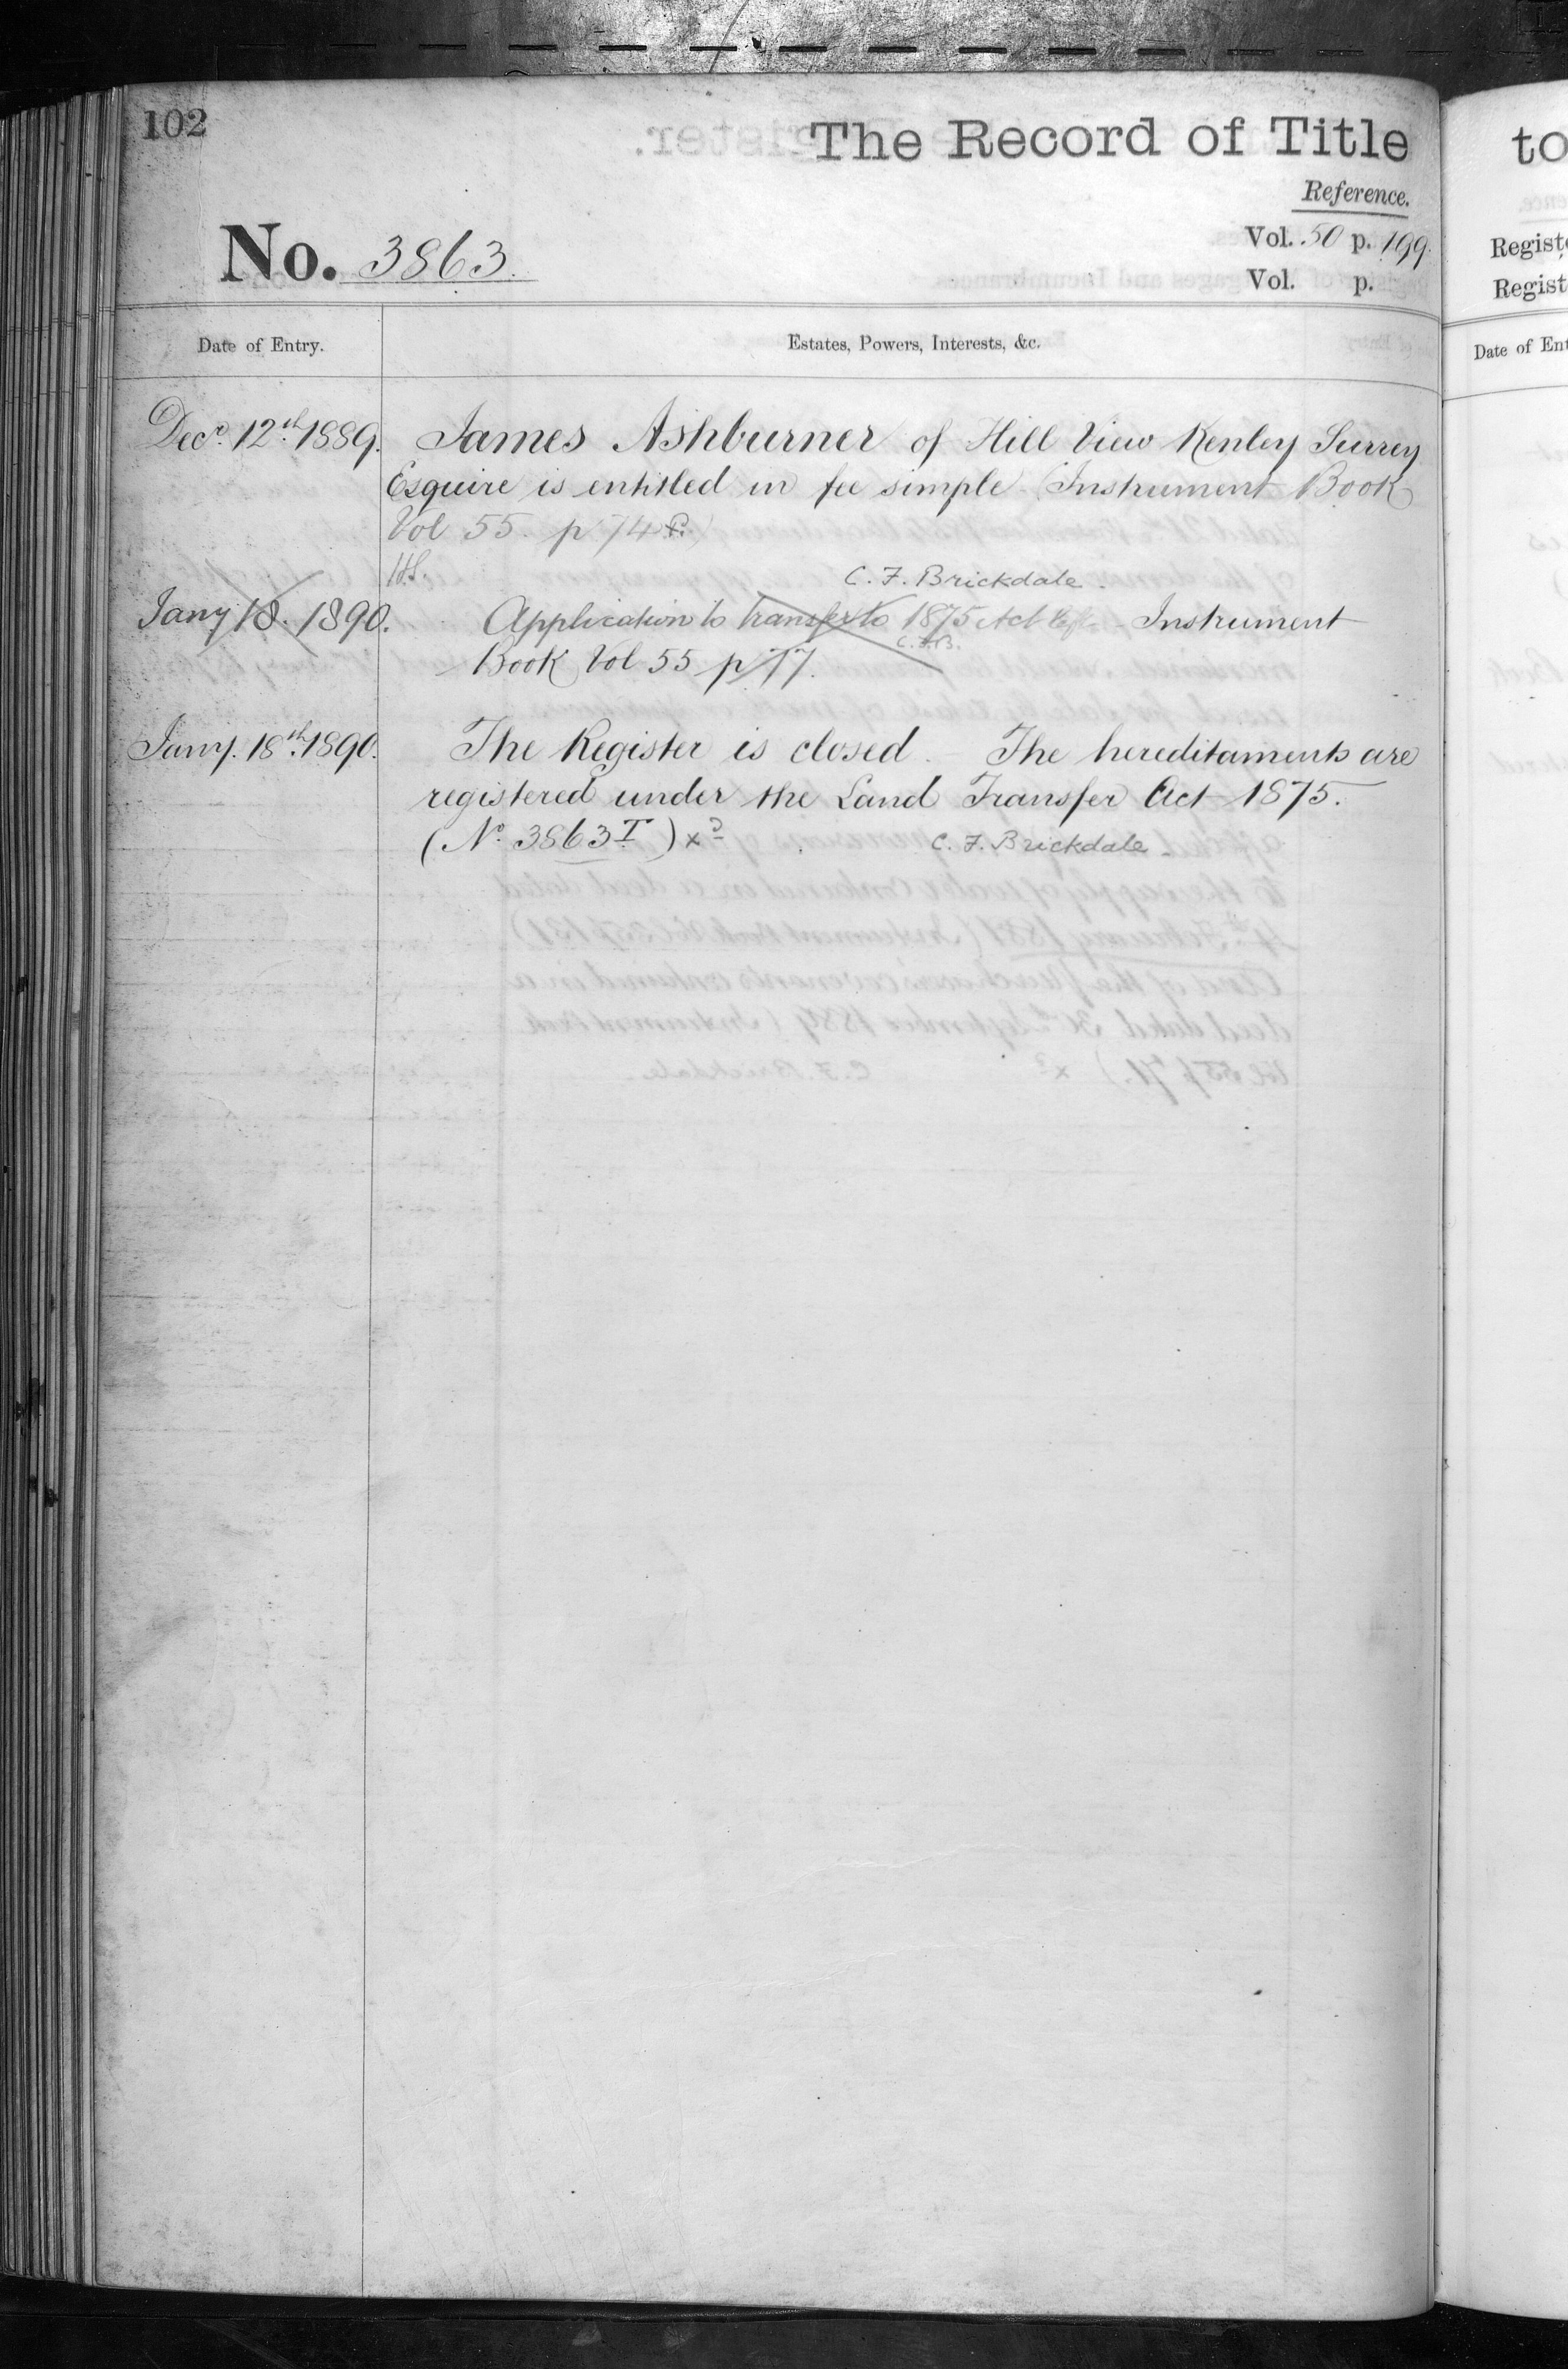 102
The Record of Title
Reference.
No. 3863.
Vol. 50 p. 199.
Vol. p.
Date of Entry.
Estates, Powers, Interests, &c.
Decr. 12th 1889. James Ashburner of Hill View Kenley Surrey
Esquire is entitled in fee simple (Instrument Book
Vol 55. p 74
C. F. Brickdale.
Jany 18. 1890. Application to transfer to 1875 Act left - Instrument
C.F.B.
Book Vol 55 p 77.
Jany. 18th 1890. The Register is closed. The hereditaments are
registered under the Land Transfer Act 1875.
(No. 3863 T) xd
C. F. Brickdale
to
Regist
Regist
Date of Ent